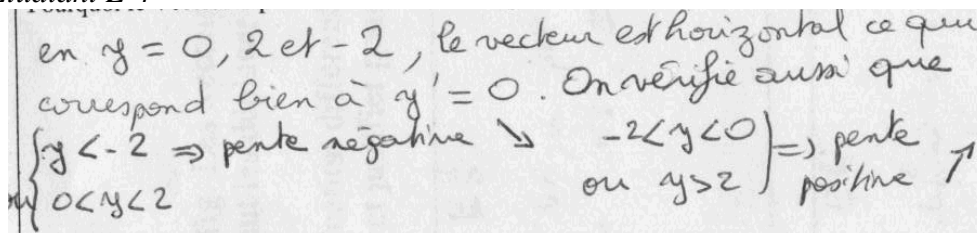 en y = 0, 2 et - 2, le vecteur est horizontal ce qui
correspond bien à y' = 0. On vérifie aussi que
{ y < - 2 ⇒ pente négative ↘ -2 < y < 0 ) ⇒ pente
ou { 0 < y < 2 ou y > 2 ) positive ↗